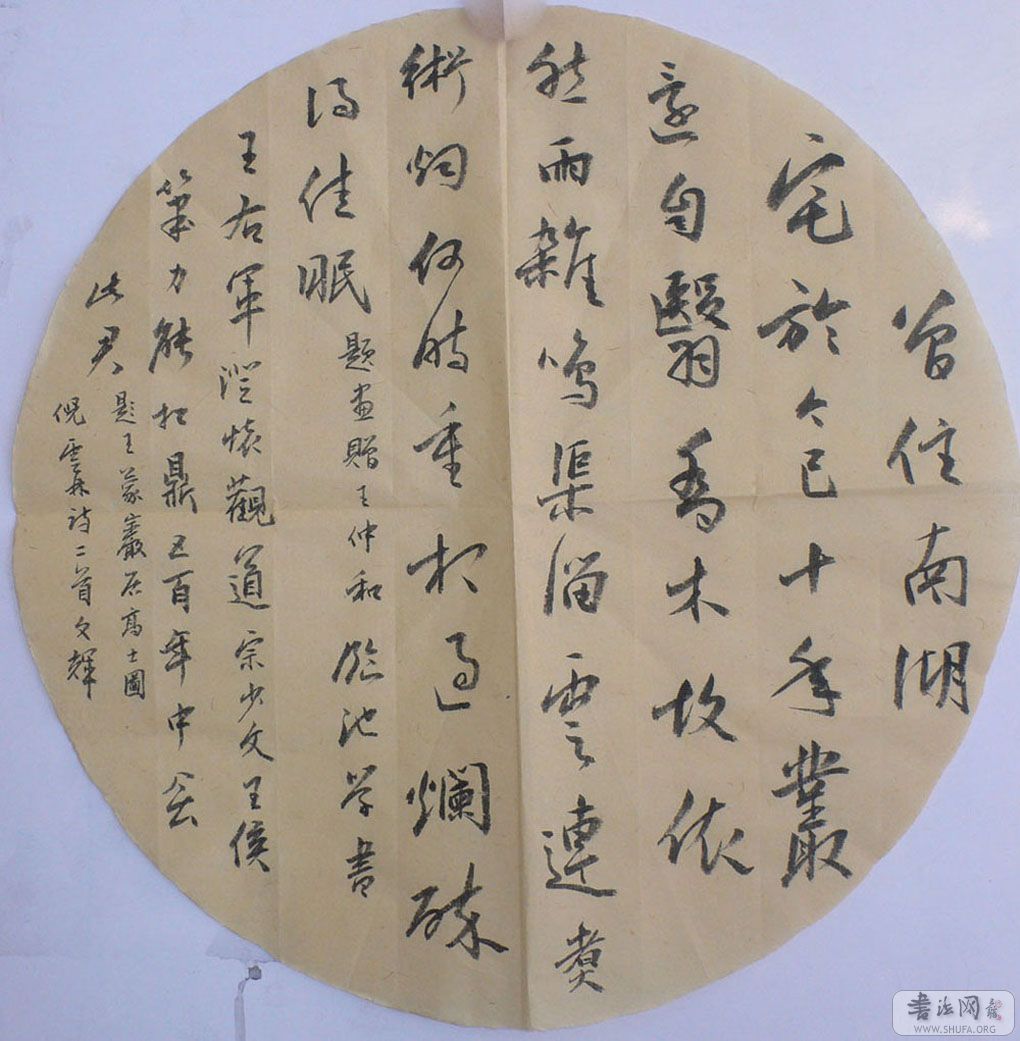 曾住南湖
宅於今已十年叢
邃自翳喬木故依
然雨雜鳴渠溜雲連煑
術烟何時重相過爛醉
得佳眠 題畫贈王仲和 臨池學書
王右軍澄懷觀道宗少文王侯
筆力能扛鼎五百年中無
此君 題王蒙巖居高士圖
倪雲林詩二首文輝
書法网
WWW.SHUFA.ORG